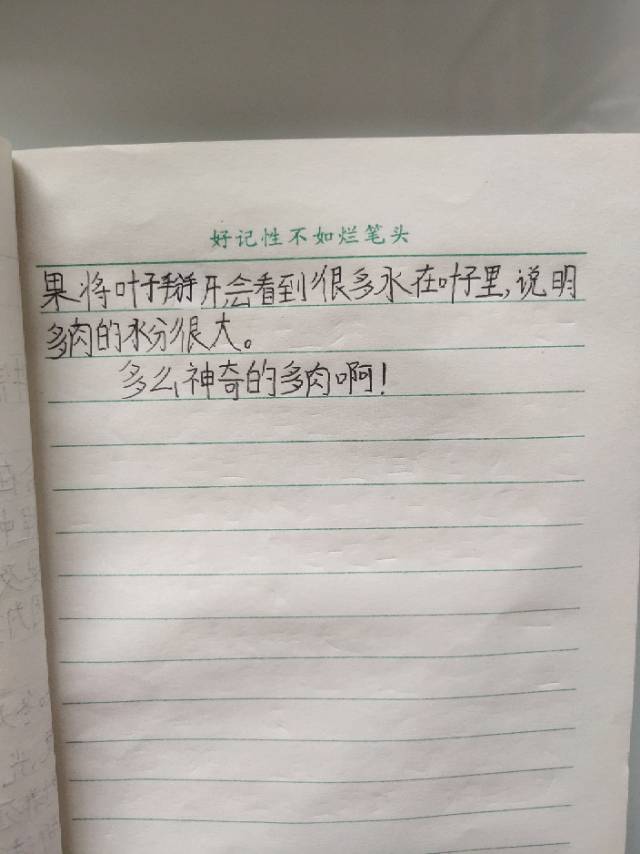 好记性不如烂笔头
果将叶子掰开,会看到很多水在叶子里,说明
多肉的水分很大。
多么神奇的多肉啊!